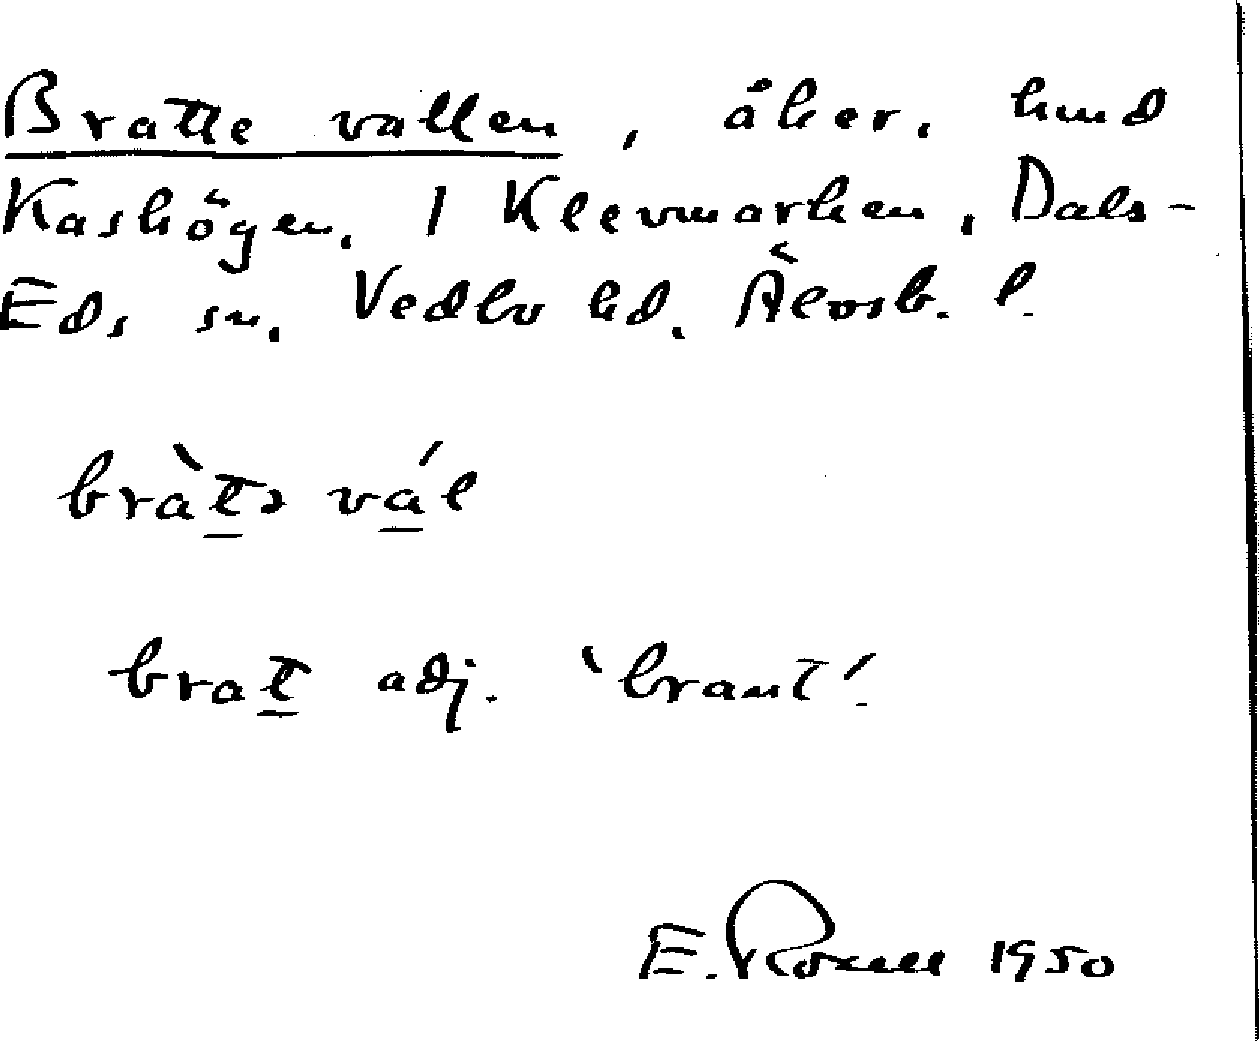 Bratte vallen, åker, hmd
Kashögen, 1 Klevmarken, Dals-
Eds sn. Vedbo hd. Älvsb. l.
bràt̲ə vá̲l
brat̲ adj. 'brant'.
E. 1950